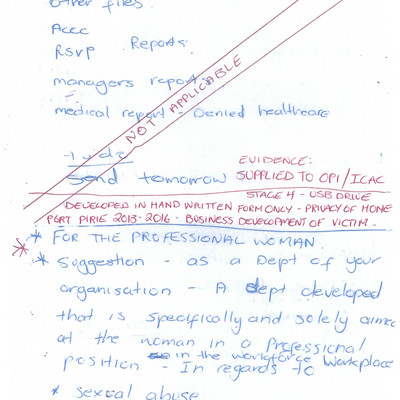 other files.
Accc
RSVP Reports.
managers report
medical report - Denied healthcare
NOT APPLICABLE
Send tomorrow
EVIDENCE:
SUPPLIED TO OPI/ICAC
STAGE 4 - USB DRIVE
DEVELOPED IN HAND WRITTEN FORM ONLY - PRIVACY OF HOME
PORT PIRIE 2013-2016 - BUSINESS DEVELOPMENT OF VICTIM.
* FOR THE PROFESSIONAL WOMAN.
* Suggestion - as a Dept of your
organisation - A dept developed
that is specifically and solely aimed
at the woman in a Professional
position - in the workforce Workplace
- In regards to
* sexual abuse